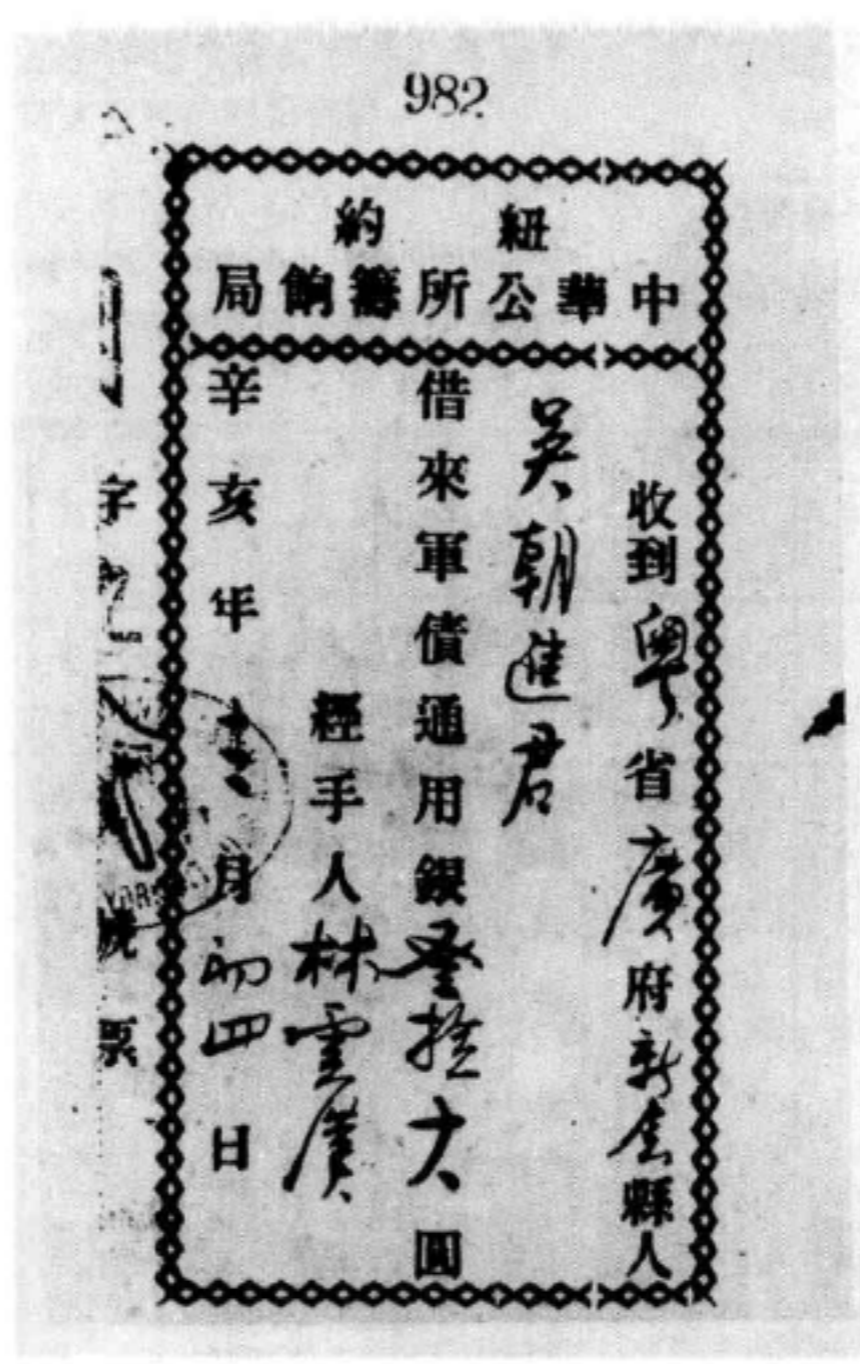 982
紐約
中華公所籌餉局
收到粵省廣府新會縣人
吳朝進君
借來軍債通用銀壹拾大圓
經手人林雲漢
辛亥年十二月初四日
字
號
票